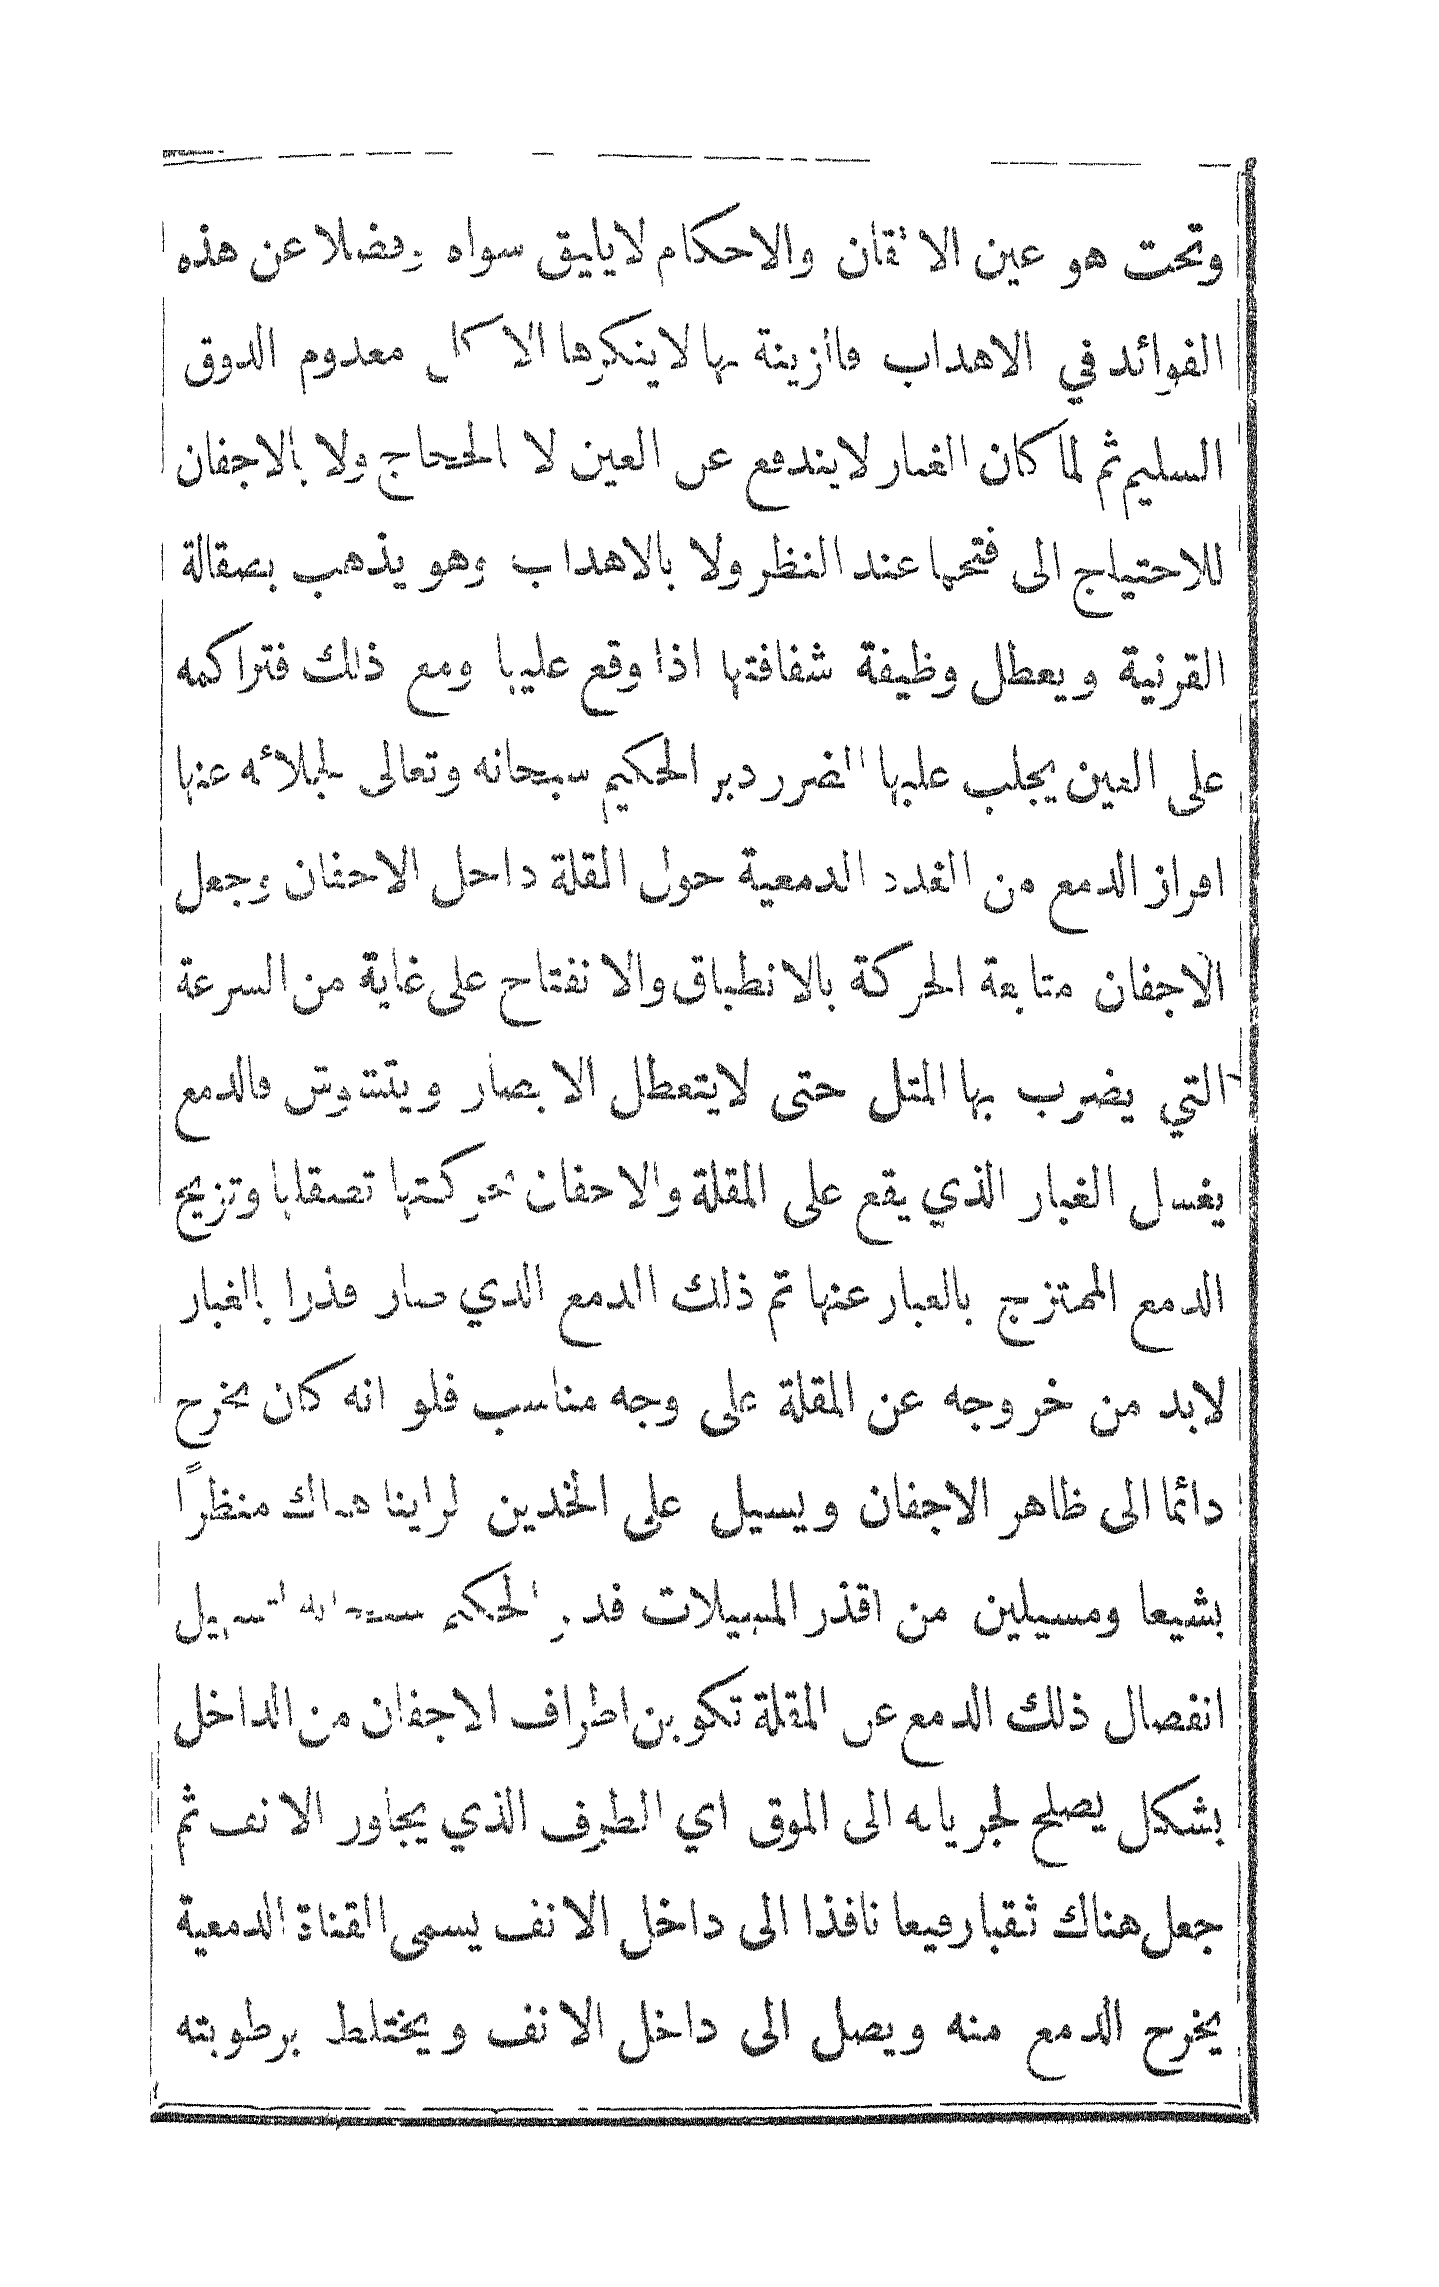 وتحت هو عين الاتقان والاحكام لايليق سواه وفضلا عن هذه
الفوائد في الاهداب فالزينة بها لاينكرها الا كل معدوم الذوق
السليم ثم لما كان الغبار لايندفع عن العين لا بالحجاج ولا بالاجفان
للاحتياج الى فتحها عند النظر ولا بالاهداب وهو يذهب بصقالة
القرنية ويعطل وظيفة شفافتها اذا وقع عليها ومع ذلك فتراكمه
على العين يجلب عليها الضرر دبر الحكيم سبحانه وتعالى لجلائه عنها
افراز الدمع من الغدد الدمعية حول المقلة داخل الاجفان وجعل
الاجفان متابعة الحركة بالانطباق والانفتاح على غاية من السرعة
التي يضرب بها المثل حتى لايتعطل الابصار ويتشوش فالدمع
يغسل الغبار الذي يقع على المقلة والاجفان بحركتها تصقلها وتزيح
الدمع الممتزج بالغبار عنها ثم ذلك الدمع الذي صار قذرا بالغبار
لابد من خروجه عن المقلة على وجه مناسب فلو انه كان يخرج
دائما الى ظاهر الاجفان ويسيل على الخدين لراينا هناك منظرًا
بشيعا ومسيلين من اقذر المسيلات فدبر الحكيم سبحانه لتسهيل
انفصال ذلك الدمع عن المقلة تكوين اطراف الاجفان من الداخل
بشكل يصلح لجريانه الى الموق اي الطرف الذي يجاور الانف ثم
جعل هناك ثقبا رفيعا نافذا الى داخل الانف يسمى القناة الدمعية
يخرج الدمع منه ويصل الى داخل الانف ويختلط برطوبته